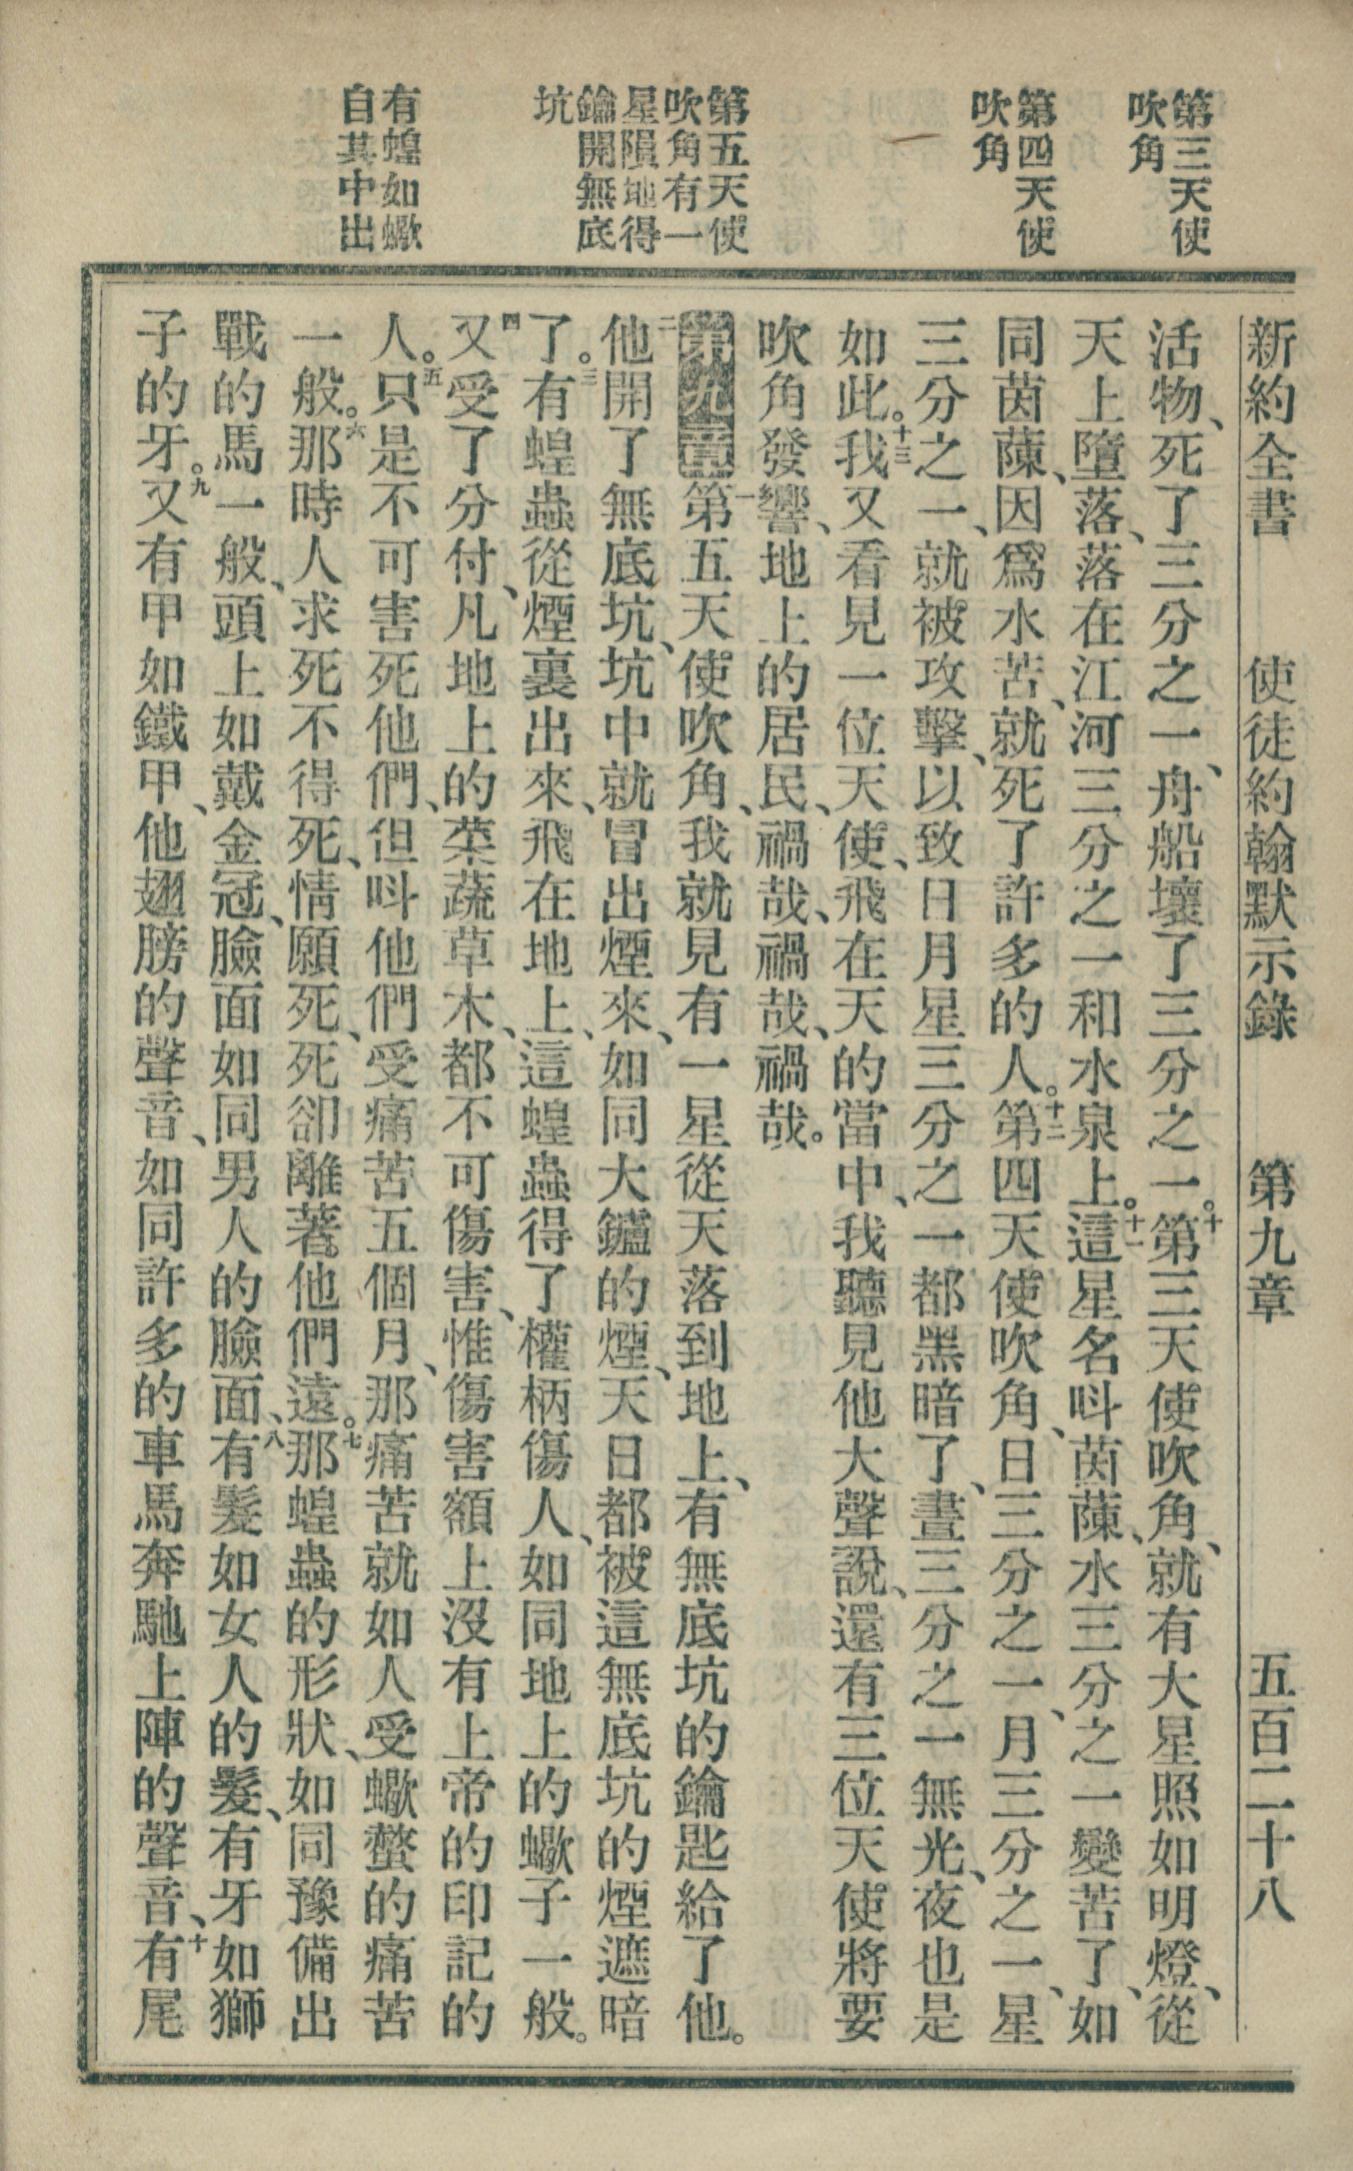 新約全書　使徒約翰默示錄　第九章　五百二十八
第三天使
吹角
第四天使
吹角
第五天使
吹角有一
星隕地得
鑰開無底
坑
有蝗如蠍
自其中出
活物、死了三分之一、舟船壞了三分之一。十第三天使吹角、就有大星照如明燈、從
天上墮落、落在江河三分之一和水泉上。十一這星名呌茵蔯、水三分之一變苦了、如
同茵蔯、因爲水苦、就死了許多的人。十二第四天使吹角、日三分之一、月三分之一、星
三分之一、就被攻擊、以致日月星三分之一都黑暗了、晝三分之一無光、夜也是
如此。十三我又看見一位天使、飛在天的當中、我聽見他大聲說、還有三位天使將要
吹角發響、地上的居民、禍哉、禍哉、禍哉。
第九章一第五天使吹角、我就見有一星從天落到地上、有無底坑的鑰匙給了他。
二他開了無底坑、坑中就冒出煙來、如同大鑪的煙、天日都被這無底坑的煙遮暗
了。三有蝗蟲從煙裏出來、飛在地上、這蝗蟲得了權柄傷人、如同地上的蠍子一般。
四又受了分付、凡地上的菜蔬草木、都不可傷害、惟傷害額上沒有上帝的印記的
人。五只是不可害死他們、但呌他們受痛苦五個月、那痛苦就如人受蠍螫的痛苦
一般。六那時人求死不得死、情願死、死卻離著他們遠。七那蝗蟲的形狀、如同豫備出
戰的馬一般、頭上如戴金冠、臉面如同男人的臉面、八有髮如女人的髮、有牙如獅
子的牙。九又有甲如鐵甲、他翅膀的聲音、如同許多的車馬奔馳上陣的聲音、十有尾